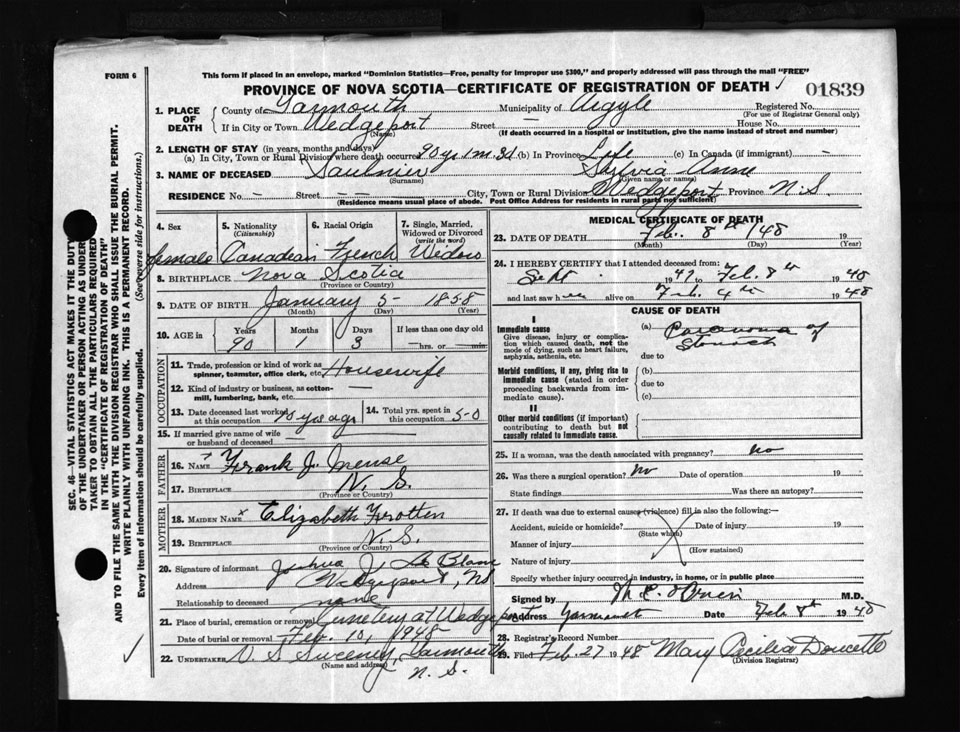 FORM 6
This form if placed in an envelope, marked "Dominion Statistics—Free, penalty for improper use $300," and properly addressed will pass through the mail "FREE"
PROVINCE OF NOVA SCOTIA—CERTIFICATE OF REGISTRATION OF DEATH 01839
1. PLACE OF DEATH
County of Yarmouth Municipality of Argyle Registered No.
(For use of Registrar General only)
If in City or Town Wedgeport Street — House No.
(Name) (If death occurred in a hospital or institution, give the name instead of street and number)
2. LENGTH OF STAY (in years, months and days)
(a) In City, Town or Rural Division where death occurred 90 yr 1 m 3 d (b) In Province Life (c) In Canada (if immigrant) —
3. NAME OF DECEASED Saulnier Anne
(Surname) (Given name or names)
RESIDENCE No. — Street — City, Town or Rural Division Wedgeport Province N.S.
(Residence means usual place of abode. Post Office Address for residents in rural parts not sufficient)
4. Sex 5. Nationality (Citizenship) 6. Racial Origin 7. Single, Married, Widowed or Divorced (write the word)
female Canadian French Widow
8. BIRTHPLACE Nova Scotia
(Province or Country)
9. DATE OF BIRTH January 5 - 1858
(Month) (Day) (Year)
10. AGE IN Years Months Days If less than one day old
90 1 3 hrs. or min.
OCCUPATION
11. Trade, profession or kind of work as spinner, teamster, office clerk, etc. Housewife
12. Kind of industry or business, as cotton-mill, lumbering, bank, etc. —
13. Date deceased last worked at this occupation yrs ago 14. Total yrs. spent in this occupation 50
15. If married give name of wife or husband of deceased —
FATHER
16. NAME Frank J.
17. BIRTHPLACE N. S.
(Province or Country)
MOTHER
18. MAIDEN NAME Elizabeth
19. BIRTHPLACE N.S.
(Province or Country)
20. Signature of informant Joshua J. Le Blanc
Address Wedgeport, NS
Relationship to deceased none
21. Place of burial, cremation or removal Cemetery at Wedgeport
Date of burial or removal Feb. 10, 1948
22. UNDERTAKER V. S. Sweeney, Yarmouth
(Name and address) N. S.
MEDICAL CERTIFICATE OF DEATH
23. DATE OF DEATH Feb. 8th /48 19
(Month) (Day) (Year)
24. I HEREBY CERTIFY that I attended deceased from:
Sept. 1947 to Feb. 8th 1948
and last saw her alive on Feb. 4th 1948
CAUSE OF DEATH
I
Immediate cause (a) Carcinoma of
Give disease, injury or complication which caused death, not the mode of dying, such as heart failure, asphyxia, asthenia, etc. Stomach
due to
Morbid conditions, if any, giving rise to immediate cause (stated in order proceeding backwards from immediate cause). (b)
due to
(c)
II
Other morbid conditions (if important) contributing to death but not causally related to immediate cause.
25. If a woman, was the death associated with pregnancy? no
26. Was there a surgical operation? No Date of operation 19
State findings Was there an autopsy?
27. If death was due to external causes (violence) fill in also the following:—
Accident, suicide or homicide? Date of injury 19
(State which)
Manner of injury
(How sustained)
Nature of injury
Specify whether injury occurred in industry, in home, or in public place
Signed by M.D.
Address Yarmouth Date Feb 8th 1948
28. Registrar's Record Number
29. Filed Feb. 27 1948 Mary Cecilia Doucette
(Division Registrar)
SEC. 46—VITAL STATISTICS ACT MAKES IT THE DUTY
OF THE UNDERTAKER OR PERSON ACTING AS UNDERTAKER TO OBTAIN ALL THE PARTICULARS REQUIRED
IN THE "CERTIFICATE OF REGISTRATION OF DEATH"
AND TO FILE THE SAME WITH THE DIVISION REGISTRAR WHO SHALL ISSUE THE BURIAL PERMIT.
WRITE PLAINLY WITH UNFADING INK. THIS IS A PERMANENT RECORD.
Every item of information should be carefully supplied. (See reverse side for instructions.)